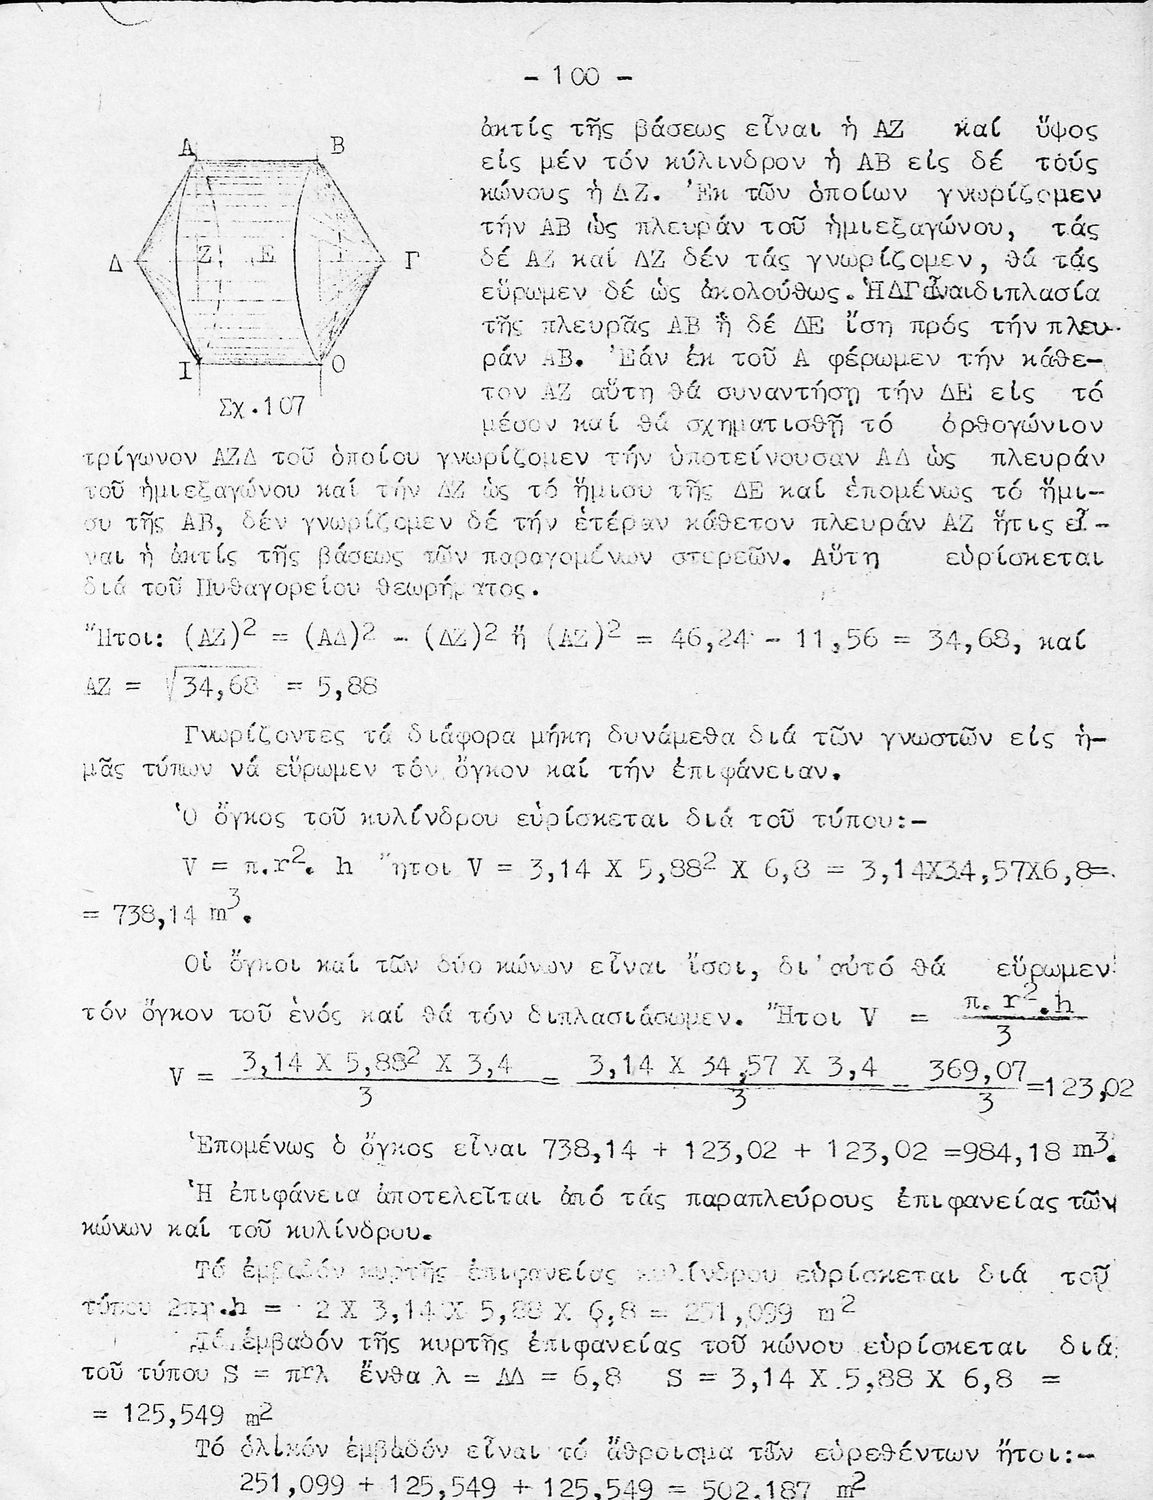 - 100 -
A B
Δ Z E Γ
I O
Σχ.107
ἀκτίς τῆς βάσεως εἶναι ἡ ΑΖ καί ὕψος
εἰς μέν τόν κύλινδρον ἡ ΑΒ εἰς δέ τούς
κώνους ἡ ΔΖ. Ἐκ τῶν ὁποίων γνωρίζομεν
τήν ΑΒ ὡς πλευράν τοῦ ἡμιεξαγώνου, τάς
δέ ΑΖ καί ΔΖ δέν τάς γνωρίζομεν, θά τάς
εὕρωμεν δέ ὡς ἀκολούθως. Ἡ ΔΓ εἶναι διπλασία
τῆς πλευρᾶς ΑΒ ἤ δέ ΔΕ ἴση πρός τήν πλευ-
ράν ΑΒ. Ἐάν ἐκ τοῦ Α φέρωμεν τήν κάθε-
τον ΑΖ αὕτη θά συναντήσῃ τήν ΔΕ εἰς τό
μέσον καί θά σχηματισθῇ τό ὀρθογώνιον
τρίγωνον ΑΖΔ τοῦ ὁποίου γνωρίζομεν τήν ὑποτείνουσαν ΑΔ ὡς πλευράν
τοῦ ἡμιεξαγώνου καί τήν ΔΖ ὡς τό ἥμισυ τῆς ΔΕ καί ἑπομένως τό ἥμι-
συ τῆς ΑΒ, δέν γνωρίζομεν δέ τήν ἑτέραν κάθετον πλευράν ΑΖ ἥτις εἶ-
ναι ἡ ἀκτίς τῆς βάσεως τῶν παραγομένων στερεῶν. Αὕτη εὑρίσκεται
διά τοῦ Πυθαγορείου θεωρήματος.
Ἤτοι: (ΑΖ)² = (ΑΔ)² - (ΔΖ)² ἤ (ΑΖ)² = 46,24 - 11,56 = 34,68, καί
ΑΖ = √34,68 = 5,88
Γνωρίζοντες τά διάφορα μήκη δυνάμεθα διά τῶν γνωστῶν εἰς ἡ-
μᾶς τύπων νά εὕρωμεν τόν ὄγκον καί τήν ἐπιφάνειαν.
Ὁ ὄγκος τοῦ κυλίνδρου εὑρίσκεται διά τοῦ τύπου:-
V = π.r². h ἤτοι V = 3,14 X 5,88² X 6,8 = 3,14X34,57X6,8=
= 738,14 m³.
Οἱ ὄγκοι καί τῶν δύο κώνων εἶναι ἴσοι, δι' αὐτό θά εὕρωμεν
τόν ὄγκον τοῦ ἑνός καί θά τόν διπλασιάσωμεν. Ἤτοι V = π. r².h / 3
V = 3,14 X 5,88² X 3,4 / 3 = 3,14 X 34,57 X 3,4 / 3 = 369,07 / 3 =123,02
Ἑπομένως ὁ ὄγκος εἶναι 738,14 + 123,02 + 123,02 =984,18 m³.
Ἡ ἐπιφάνεια ἀποτελεῖται ἀπό τάς παραπλεύρους ἐπιφανείας τῶν
κώνων καί τοῦ κυλίνδρου.
Τό ἐμβαδόν κυρτῆς ἐπιφανείας κυλίνδρου εὑρίσκεται διά τοῦ
τύπου 2πr.h = 2 X 3,14 X 5,88 X 6,8 = 251,099 m²
Τό ἐμβαδόν τῆς κυρτῆς ἐπιφανείας τοῦ κώνου εὑρίσκεται διά
τοῦ τύπου S = πrλ ἔνθα λ = ΑΔ = 6,8 S = 3,14 X 5,88 X 6,8 =
= 125,549 m²
Τό ὁλικόν ἐμβαδόν εἶναι τό ἄθροισμα τῶν εὑρεθέντων ἤτοι:-
251,099 + 125,549 + 125,549 = 502.187 m²